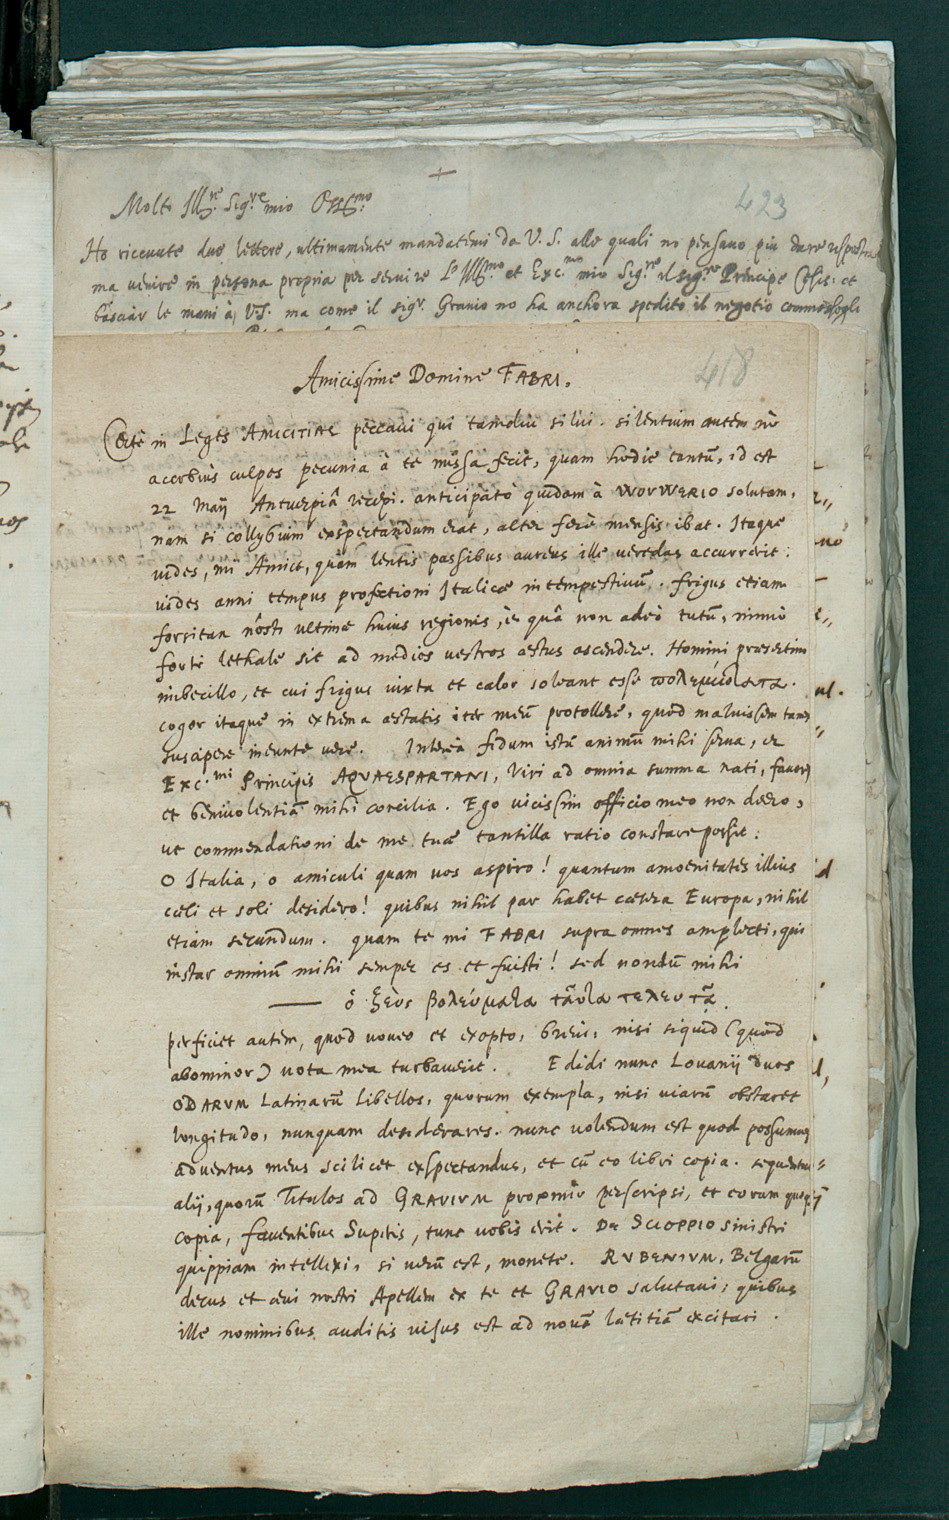 +
423
Molto Ill.re Sig.re mio Oss.mo
Ho ricevute due lettere, ultimamente mandatemi da V.S. alle quali nõ pensavo piu dare
ma venire in persona propria per servire L' Ill.mo et Ecc.mo mio Sig.re il sig.re Principe Cesis. et
basciar le mani à VS. ma come il sigr. Gravio nõ ha anchora spedito il negotio
418
Amicissime Domine FABRI.
Certè in Leges AMICITIAE peccavi qui tamdiu silui. silentium autem nõ
acerbius culpes pecunia à te missa fecit, quam hodie tantũ, id est
22 Maij Antverpiâ recepi. anticipatò quidam à WOVWERIO solutam,
nam si collybium exspectandum erat, alter ferè mensis ibat. Itaque
vides, mi Amice, quàm lentis passibus aureus ille veredus accurrerit:
vides anni tempus profectioni Italicæ intempestivũ. frigus etiam
forsitan nosti ultimæ huius regionis, è quâ non adeò tutũ, nimiò
fortè lethale sit ad medios vestros æstus ascendere. Homini præsertim
imbecillo, et cui frigus iuxta et calor soleant esse
cogor itaque in extrema æstatis iter meũ protollere, quod maluissem tamen
suscipere ineunte vere. Interea fidum istũ animũ mihi serva, et
Exc.mi Principis AQVAESPARTANI, Viri ad omnia summa nati, favorẽ
et benivolentiã mihi concilia. Ego vicissim officio meo non deero,
ut commendationi de me tuæ tantilla ratio constare possit:
O Italia, o amiculi quam vos aspiro! quantum amoenitates illius
cæli et soli desidero! quibus nihil par habet cætera Europa, nihil
etiam secundum. quam te mi FABRI supra omnes amplecti, qui
instar omniũ mihi semper es et fuisti! sed nondũ mihi
— ὁ ξεὺς βολεύματα ταῦτα τελευτᾶ.
perficiet autem, quod voveo et exopto, brevi, nisi siquid (quod
abominor) vota mea turbaverit. Edidi nunc Lovanij duos
ODARVM Latinarũ Libellos, quorum exempla, nisi viarũ obstaret
longitudo, nunquam desiderares. nunc volendum est quod possumus
adventus meus scilicet exspectandus, et cũ eo libri copia. sequentur
alij, quorũ Titulos ad GRAVIVM proximè perscripsi, et eorum quoq;
copia, faventibus Superis, tunc vobis erit. De SCIOPPIO sinistri
quippiam intellexi, si verũ est, monete. RVBENIVM, Belgarũ
decus et ævi nostri Apellem ex te et GRAVIO salutavi; quibus
ille nominibus auditis visus est ad novã lætitiã excitari.